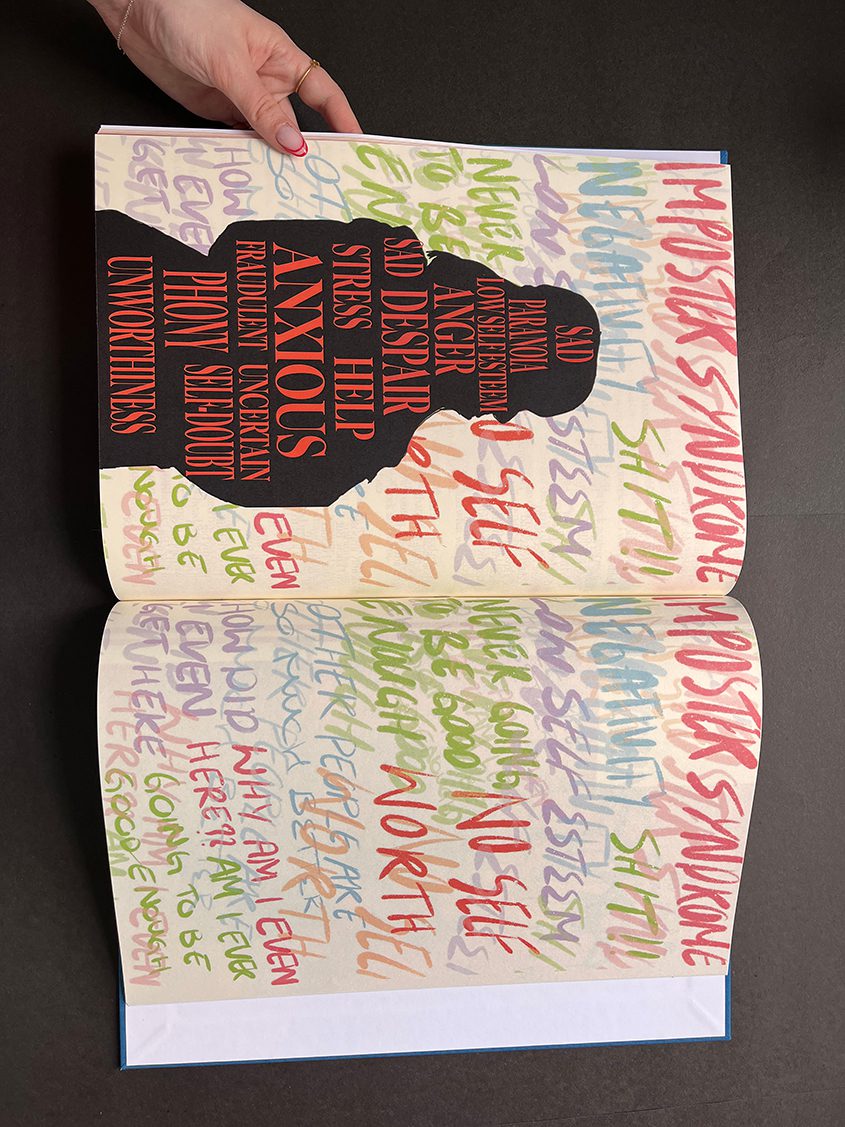 IMPOSTER SYNDROME
NEGATIVITY
SHIT!!
ESTEEM
NEVER
SELF
TO BE
SAD
PARANOIA
LOW SELF ESTEEM
ANGER
SAD DESPAIR
STRESS HELP
ANXIOUS
FRAUDULENT UNCERTAIN
PHONY SELF-DOUBT
UNWORTHINESS
HOW
EVEN
EVEN
EVER
TO BE
IMPOSTER SYNDROME
NEGATIVITY
SHIT!!
LOW SELF ESTEEM
NEVER GOING NO SELF
TO BE GOOD
ENOUGH WORTH
OTHER PEOPLE ARE
SO MUCH BETTER
HOW DID WHY AM I EVEN
EVEN HERE?! AM I EVER
GET HERE GOING TO BE
GOOD ENOUGH